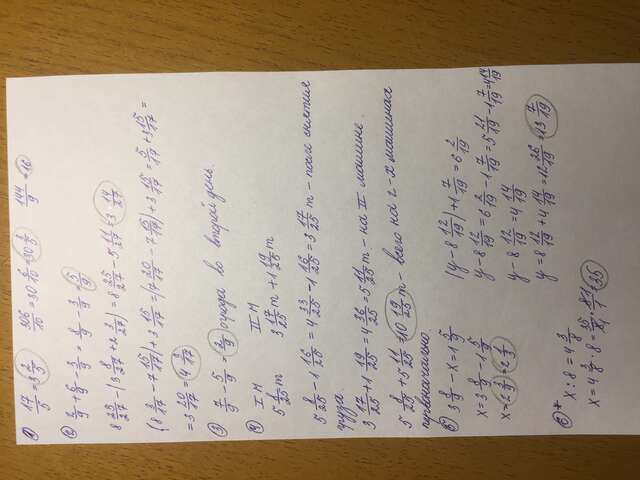 ① 17/5 = 3 2/5 306/10 = 30 6/10 = 30 3/5 144/9 = 16
② 2/9 + 6/9 - 3/9 = 8/9 - 3/9 = 5/9
8 25/27 - (3 8/27 + 2 3/27) = 8 25/27 - 5 11/27 = 3 14/27
(8 3/17 - 7 15/17) + 3 15/17 = (7 20/17 - 7 15/17) + 3 15/17 = 5/17 + 3 15/17 =
= 3 20/17 = 4 3/17
③ 7/9 - 5/9 = 2/9 огорода во второй день.
④ I м II м
5 8/25 т 3 17/25 т + 1 19/25 т
5 8/25 - 1 16/25 = 4 33/25 - 1 16/25 = 3 17/25 т - после снятия
груза.
3 17/25 + 1 19/25 = 4 36/25 = 5 11/25 т - на II машине.
5 8/25 + 5 11/25 = 10 19/25 т - всего на 2-х машинах
первоначально
⑤ 3 8/9 - x = 1 5/9
x = 3 8/9 - 1 5/9
x = 2 3/9 = 2 1/3
(y - 8 12/19) + 1 7/19 = 6 2/19
y - 8 12/19 = 6 2/19 - 1 7/19 = 5 21/19 - 1 7/19 = 4 14/19
y - 8 12/19 = 4 14/19
y = 8 12/19 + 4 14/19 = 12 26/19 = 13 7/19
⑥* x : 8 = 4 3/8
x = 4 3/8 · 8 = 35/8 · 8/1 = 35